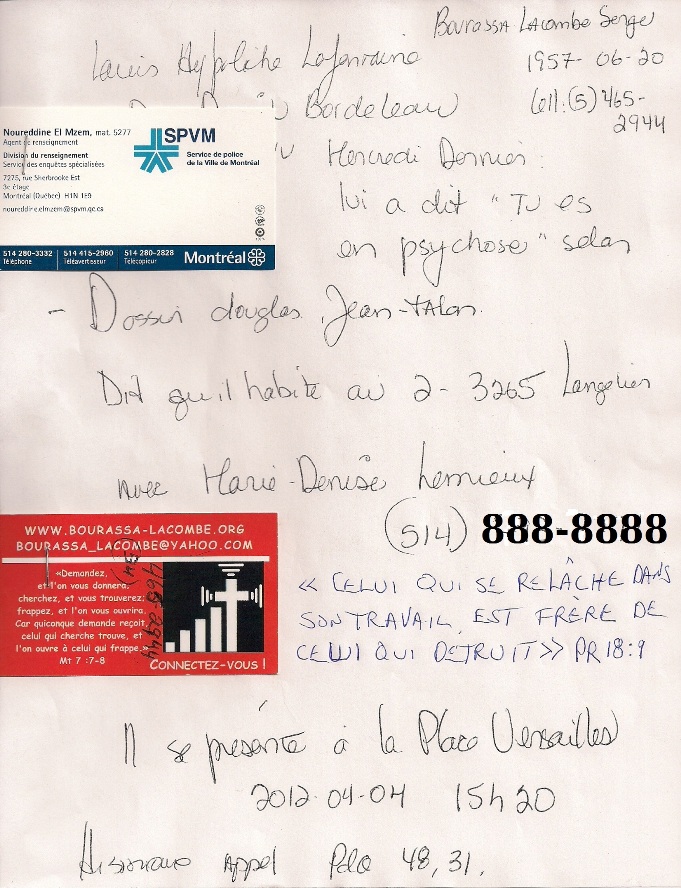 Bourassa Lacombe Serge
1957-06-20
Louis Hypolithe Lafontaine
cell. (5) 465-
2944
Bordeleau
Noureddine El Mzem, mat. 5277
Agent de renseignement
Division du renseignement
Service des enquêtes spécialisées
7275, rue Sherbrooke Est
3e étage
Montréal (Québec) H1N 1E9
noureddine.elmzem@spvm.qc.ca
SPVM
Service de police
de la Ville de Montréal
514 280-3332 514 415-2960 514 280-2828
Téléphone Téléavertisseur Télécopieur
Montréal
Mercredi Dernier:
lui a dit "Tu es
en psychose" selon
- Dossier douglas, Jean-Talon.
Dit qu'il habite au 2-3265 Langelier
avec Marie-Denise Lemieux
(514) 888-8888
WWW.BOURASSA-LACOMBE.ORG
BOURASSA_LACOMBE@YAHOO.COM
«Demandez,
et l'on vous donnera;
cherchez, et vous trouverez;
frappez, et l'on vous ouvrira.
Car quiconque demande reçoit,
celui qui cherche trouve, et
l'on ouvre à celui qui frappe.»
Mt 7 :7-8
CONNECTEZ-VOUS !
465-2944
« CELUI QUI SE RELÂCHE DANS
SON TRAVAIL, EST FRÈRE DE
CELUI QUI DETRUIT» PR 18:9
Il se présente à la Place Versailles
2012-04-04 15h20
Appel Pdq 48, 31.